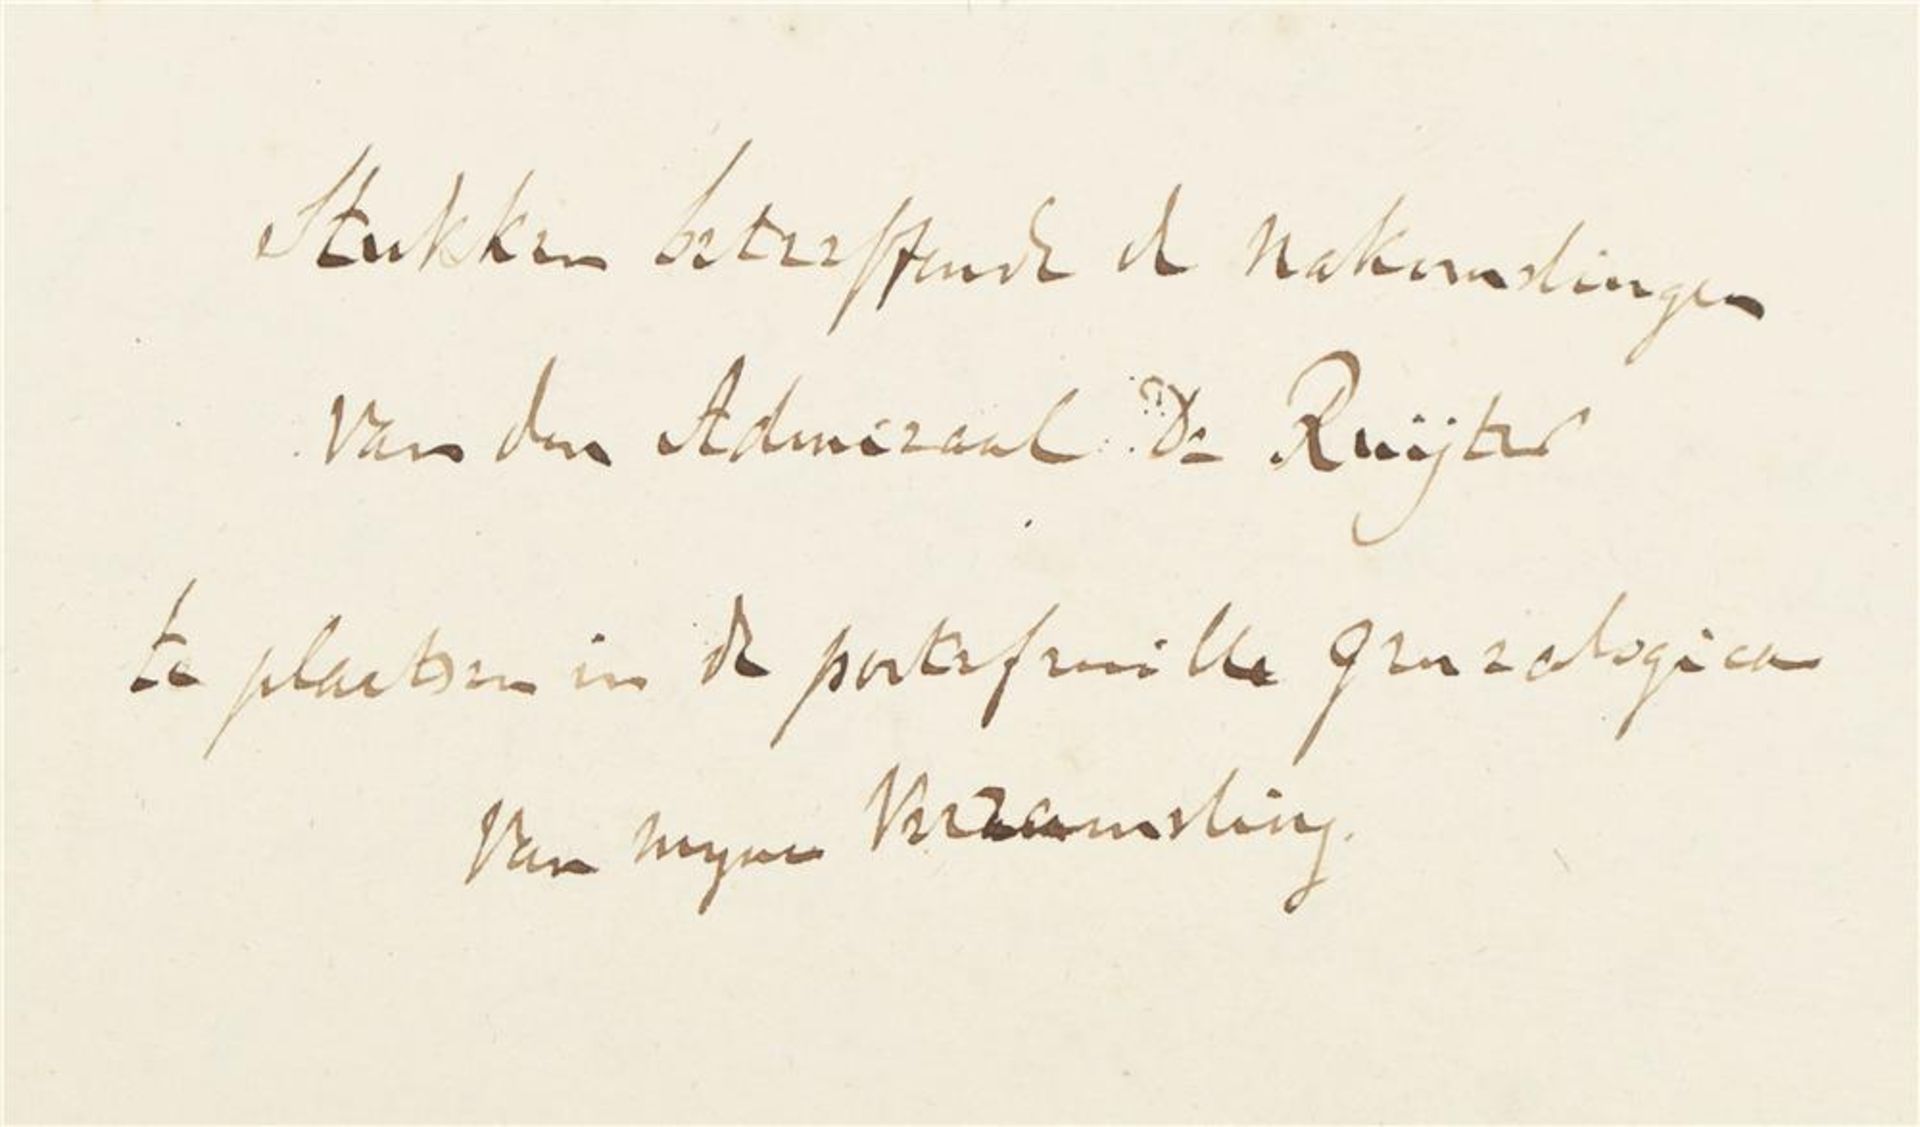 Stukken betreffende de nakomelingen
van den Admiraal De Ruijter
te plaatsen in de portefeuille genealogica
van mijne Verzameling.